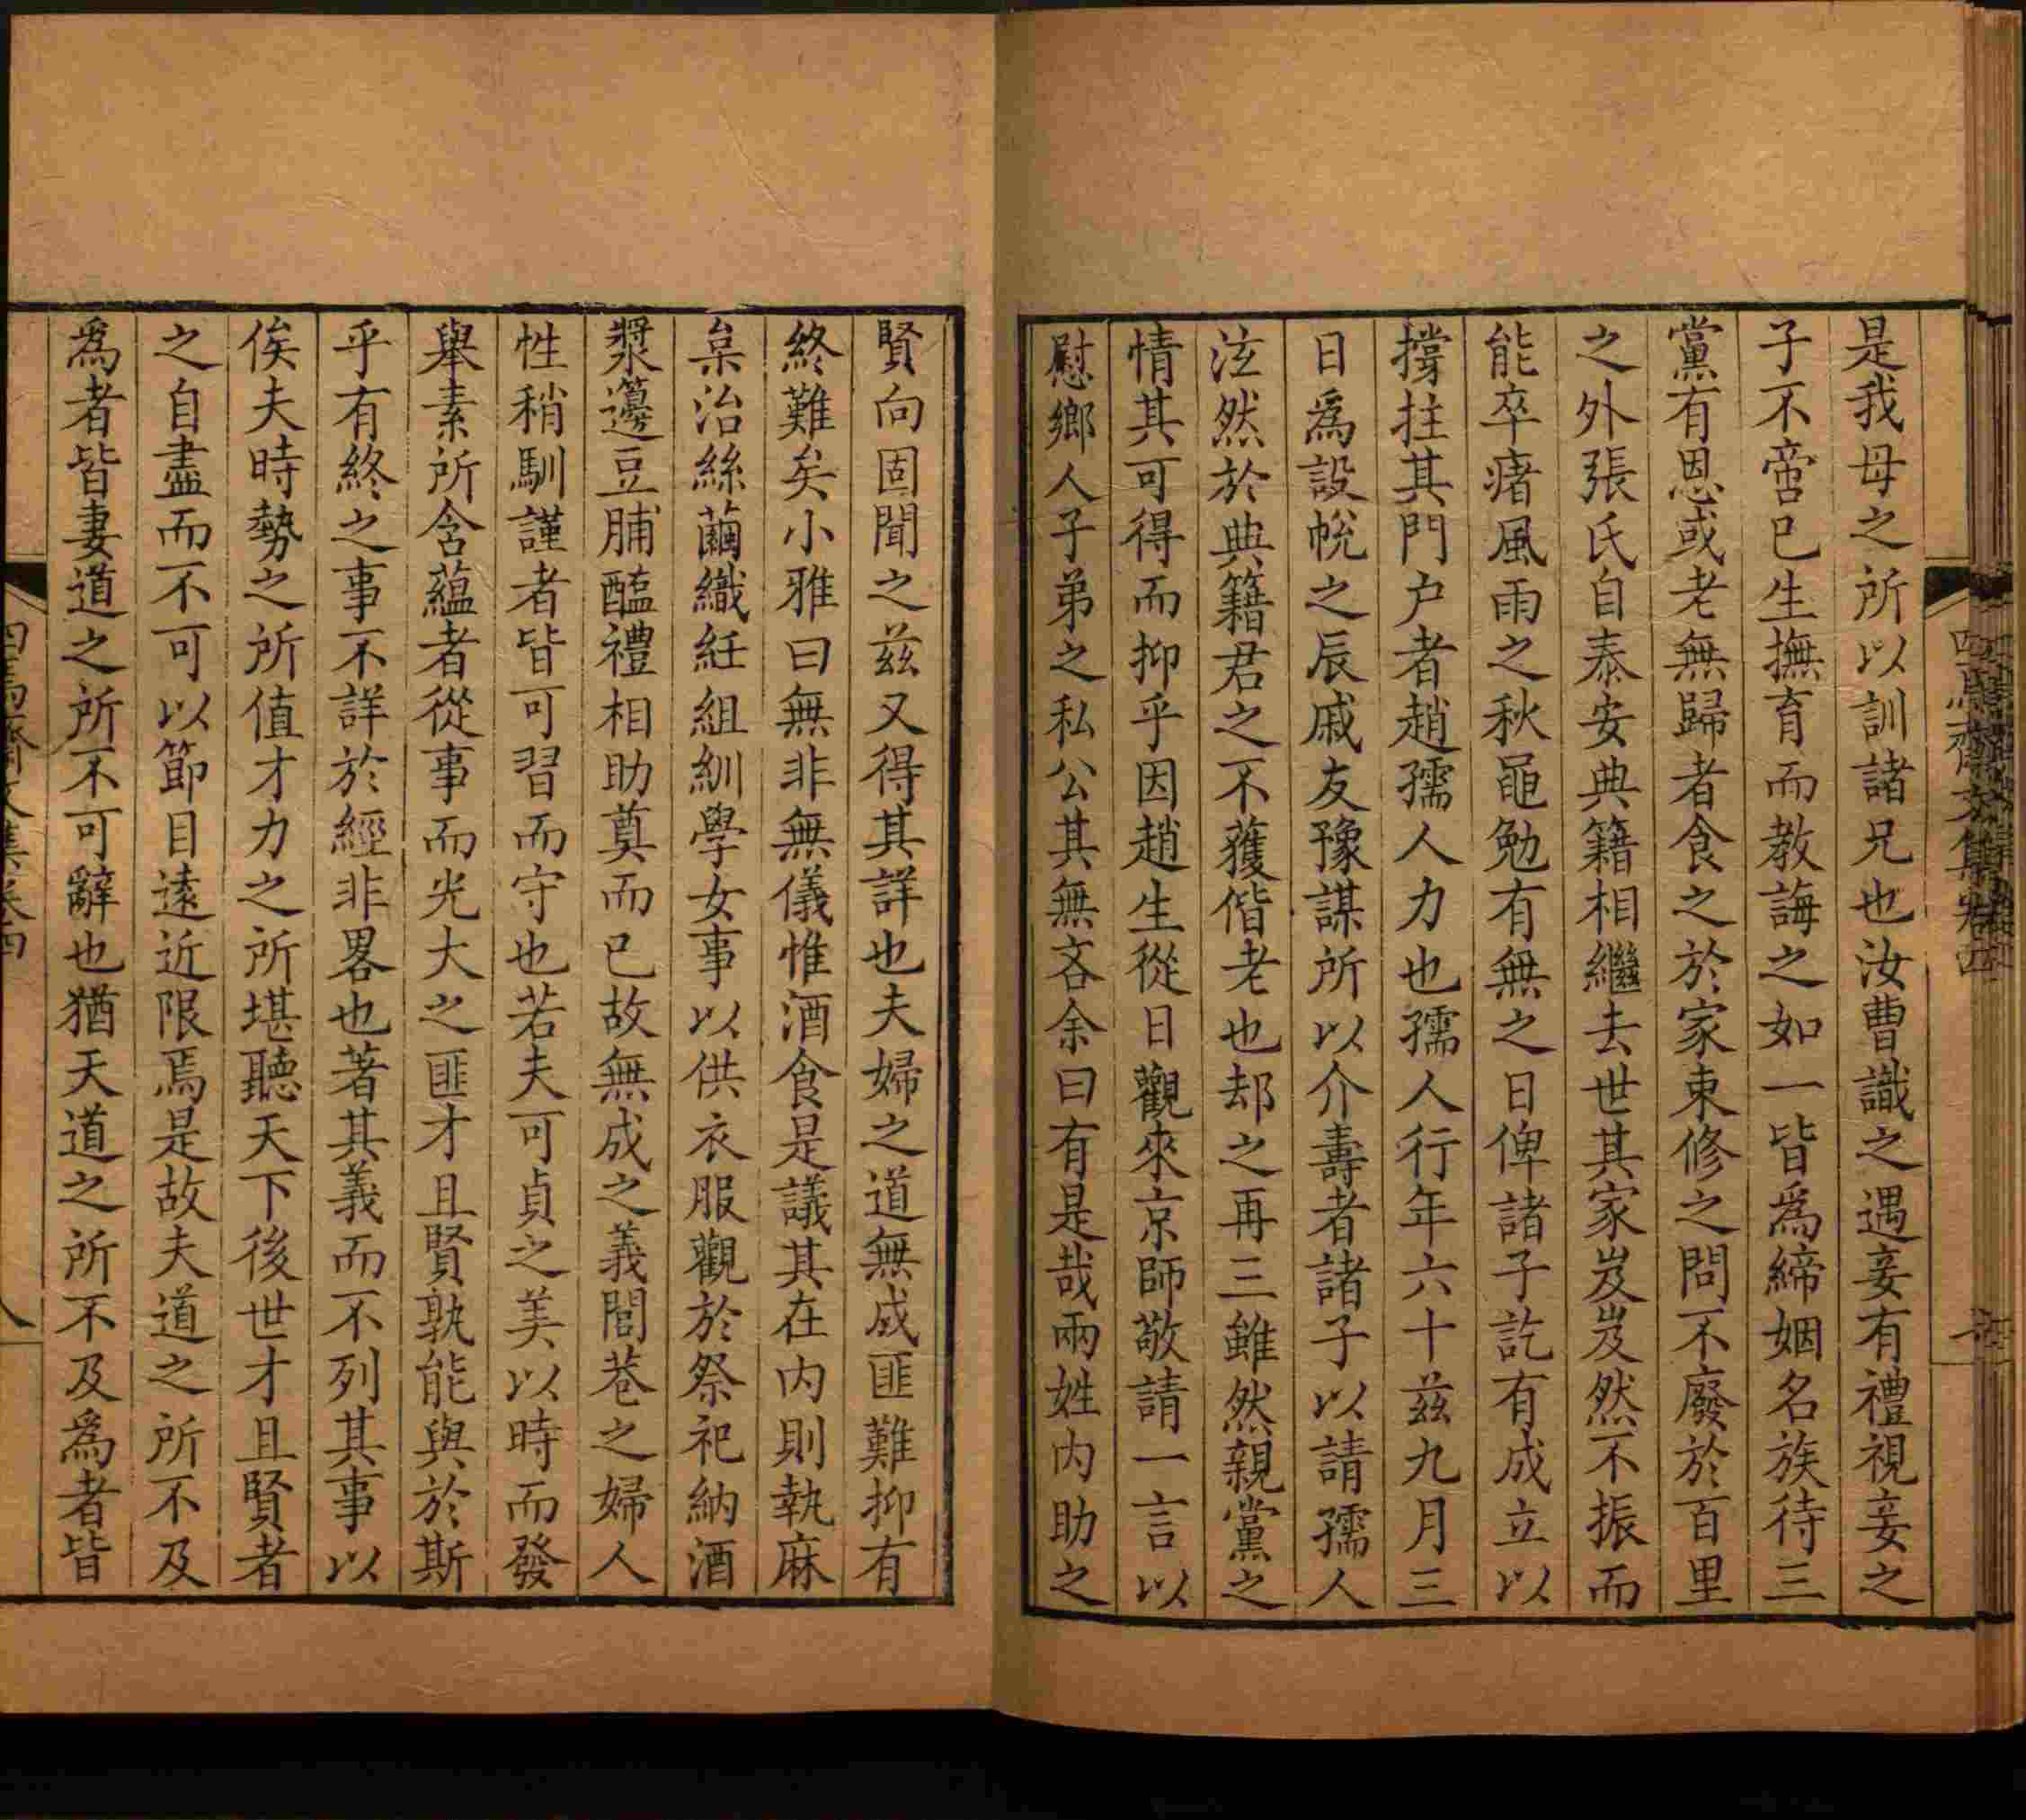 是我母之所以訓諸兄也汝曹識之遇妾有禮視妾之
子不啻已生撫育而教誨之如一皆爲締姻名族待三
黨有恩或老無歸者食之於家束修之問不廢於百里
之外張氏自泰安典籍相繼去世其家岌岌然不振而
能卒瘏風雨之秋黽勉有無之日俾諸子訖有成立以
撐拄其門户者趙孺人力也孺人行年六十兹九月三
日爲設帨之辰戚友豫謀所以介壽者諸子以請孺人
泫然於典籍君之不獲偕老也却之再三雖然親黨之
情其可得而抑乎因趙生從日觀來京師敬請一言以
慰鄉人子弟之私公其無吝余曰有是哉兩姓内助之
賢向固聞之兹又得其詳也夫婦之道無成匪難抑有
終難矣小雅曰無非無儀惟酒食是議其在内則執麻
枲治絲繭織紝組紃學女事以供衣服觀於祭祀納酒
漿籩豆脯醢禮相助奠而已故無成之義閭巷之婦人
性稍馴謹者皆可習而守也若夫可貞之美以時而發
舉素所含蘊者從事而光大之匪才且賢孰能與於斯
乎有終之事不詳於經非畧也著其義而不列其事以
俟夫時勢之所值才力之所堪聽天下後世才且賢者
之自盡而不可以節目遠近限焉是故夫道之所不及
爲者皆妻道之所不可辭也猶天道之所不及爲者皆